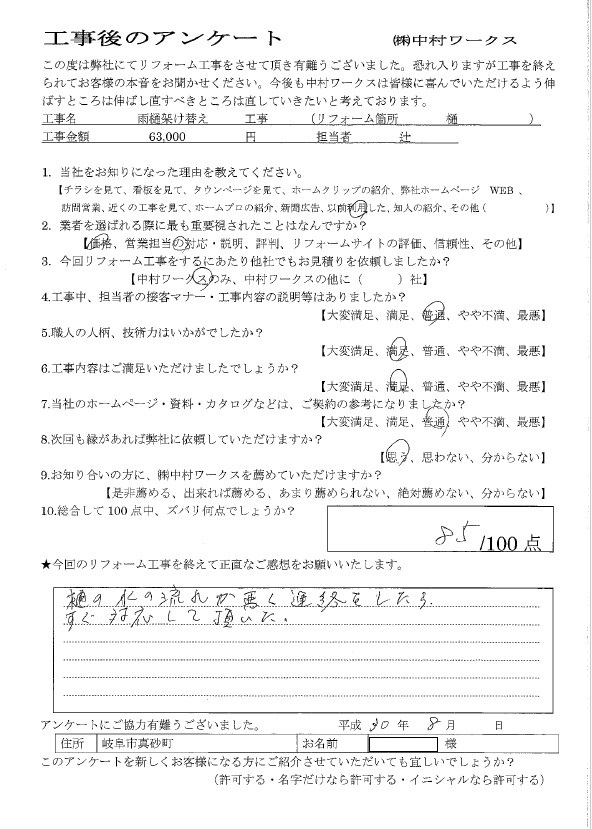 工事後のアンケート ㈱中村ワークス
この度は弊社にてリフォーム工事をさせて頂き有難うございました。恐れ入りますが工事を終え
られてお客様の本音をお聞かせください。今後も中村ワークスは皆様に喜んでいただけるよう伸
ばすところは伸ばし直すべきところは直していきたいと考えております。
工事名 雨樋架け替え 工事 (リフォーム箇所 樋 )
工事金額 63,000 円 担当者 辻
1. 当社をお知りになった理由を教えてください。
【チラシを見て、看板を見て、タウンページを見て、ホームクリップの紹介、弊社ホームページ WEB 、
訪問営業、近くの工事を見て、ホームプロの紹介、新聞広告、以前利用した、知人の紹介、その他( )】
2. 業者を選ばれる際に最も重要視されたことはなんですか?
【価格、営業担当の対応・説明、評判、リフォームサイトの評価、信頼性、その他】
3. 今回リフォーム工事をするにあたり他社でもお見積りを依頼しましたか?
【中村ワークスのみ、中村ワークスの他に( )社】
4.工事中、担当者の接客マナー・工事内容の説明等はありましたか?
【大変満足、満足、普通、やや不満、最悪】
5.職人の人柄、技術力はいかがでしたか?
【大変満足、満足、普通、やや不満、最悪】
6.工事内容はご満足いただけましたでしょうか?
【大変満足、満足、普通、やや不満、最悪】
7.当社のホームページ・資料・カタログなどは、ご契約の参考になりましたか?
【大変満足、満足、普通、やや不満、最悪】
8.次回も縁があれば弊社に依頼していただけますか?
【思う、思わない、分からない】
9.お知り合いの方に、㈱中村ワークスを薦めていただけますか?
【是非薦める、出来れば薦める、あまり薦められない、絶対薦めない、分からない】
10.総合して100点中、ズバリ何点でしょうか?
85/100点
★今回のリフォーム工事を終えて正直なご感想をお願いいたします。
樋の水の流れが悪く連絡をしたら
すぐ対応して頂いた。
アンケートにご協力有難うございました。 平成 30 年 8 月 日
住所 岐阜市真砂町 お名前 様
このアンケートを新しくお客様になる方にご紹介させていただいても宜しいでしょうか?
(許可する・名字だけなら許可する・イニシャルなら許可する)